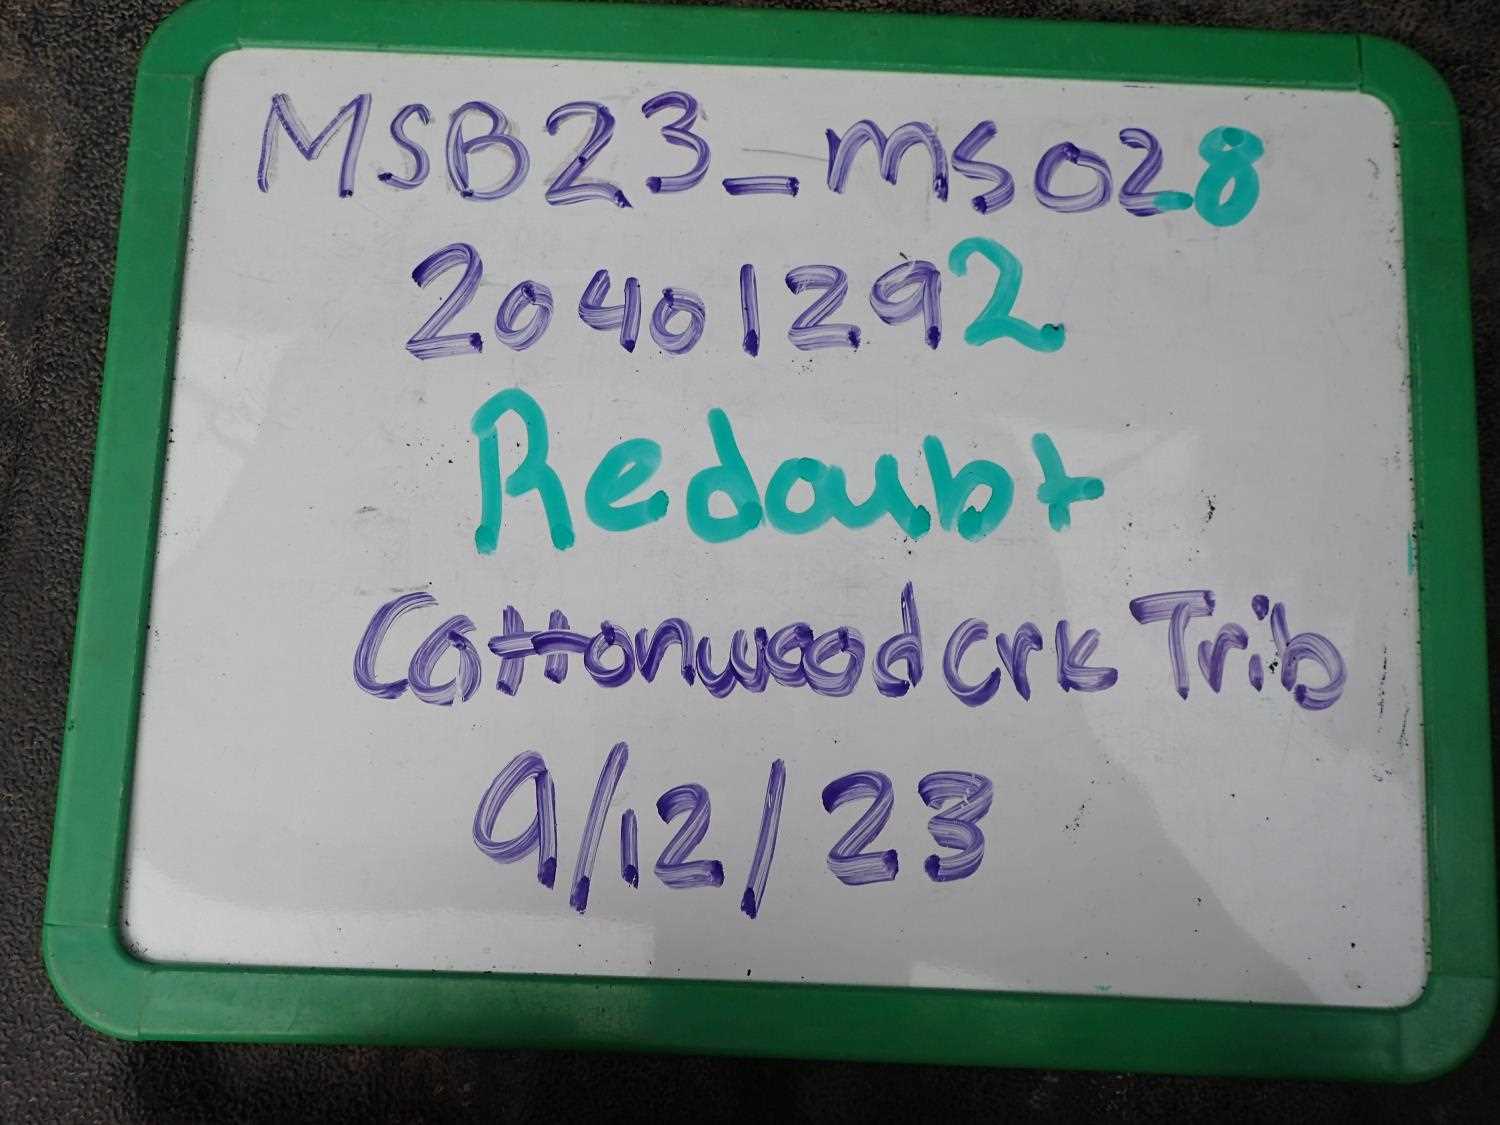 MSB23_MS028
20401292
Redoubt
Cottonwood Crk Trib
9/12/23